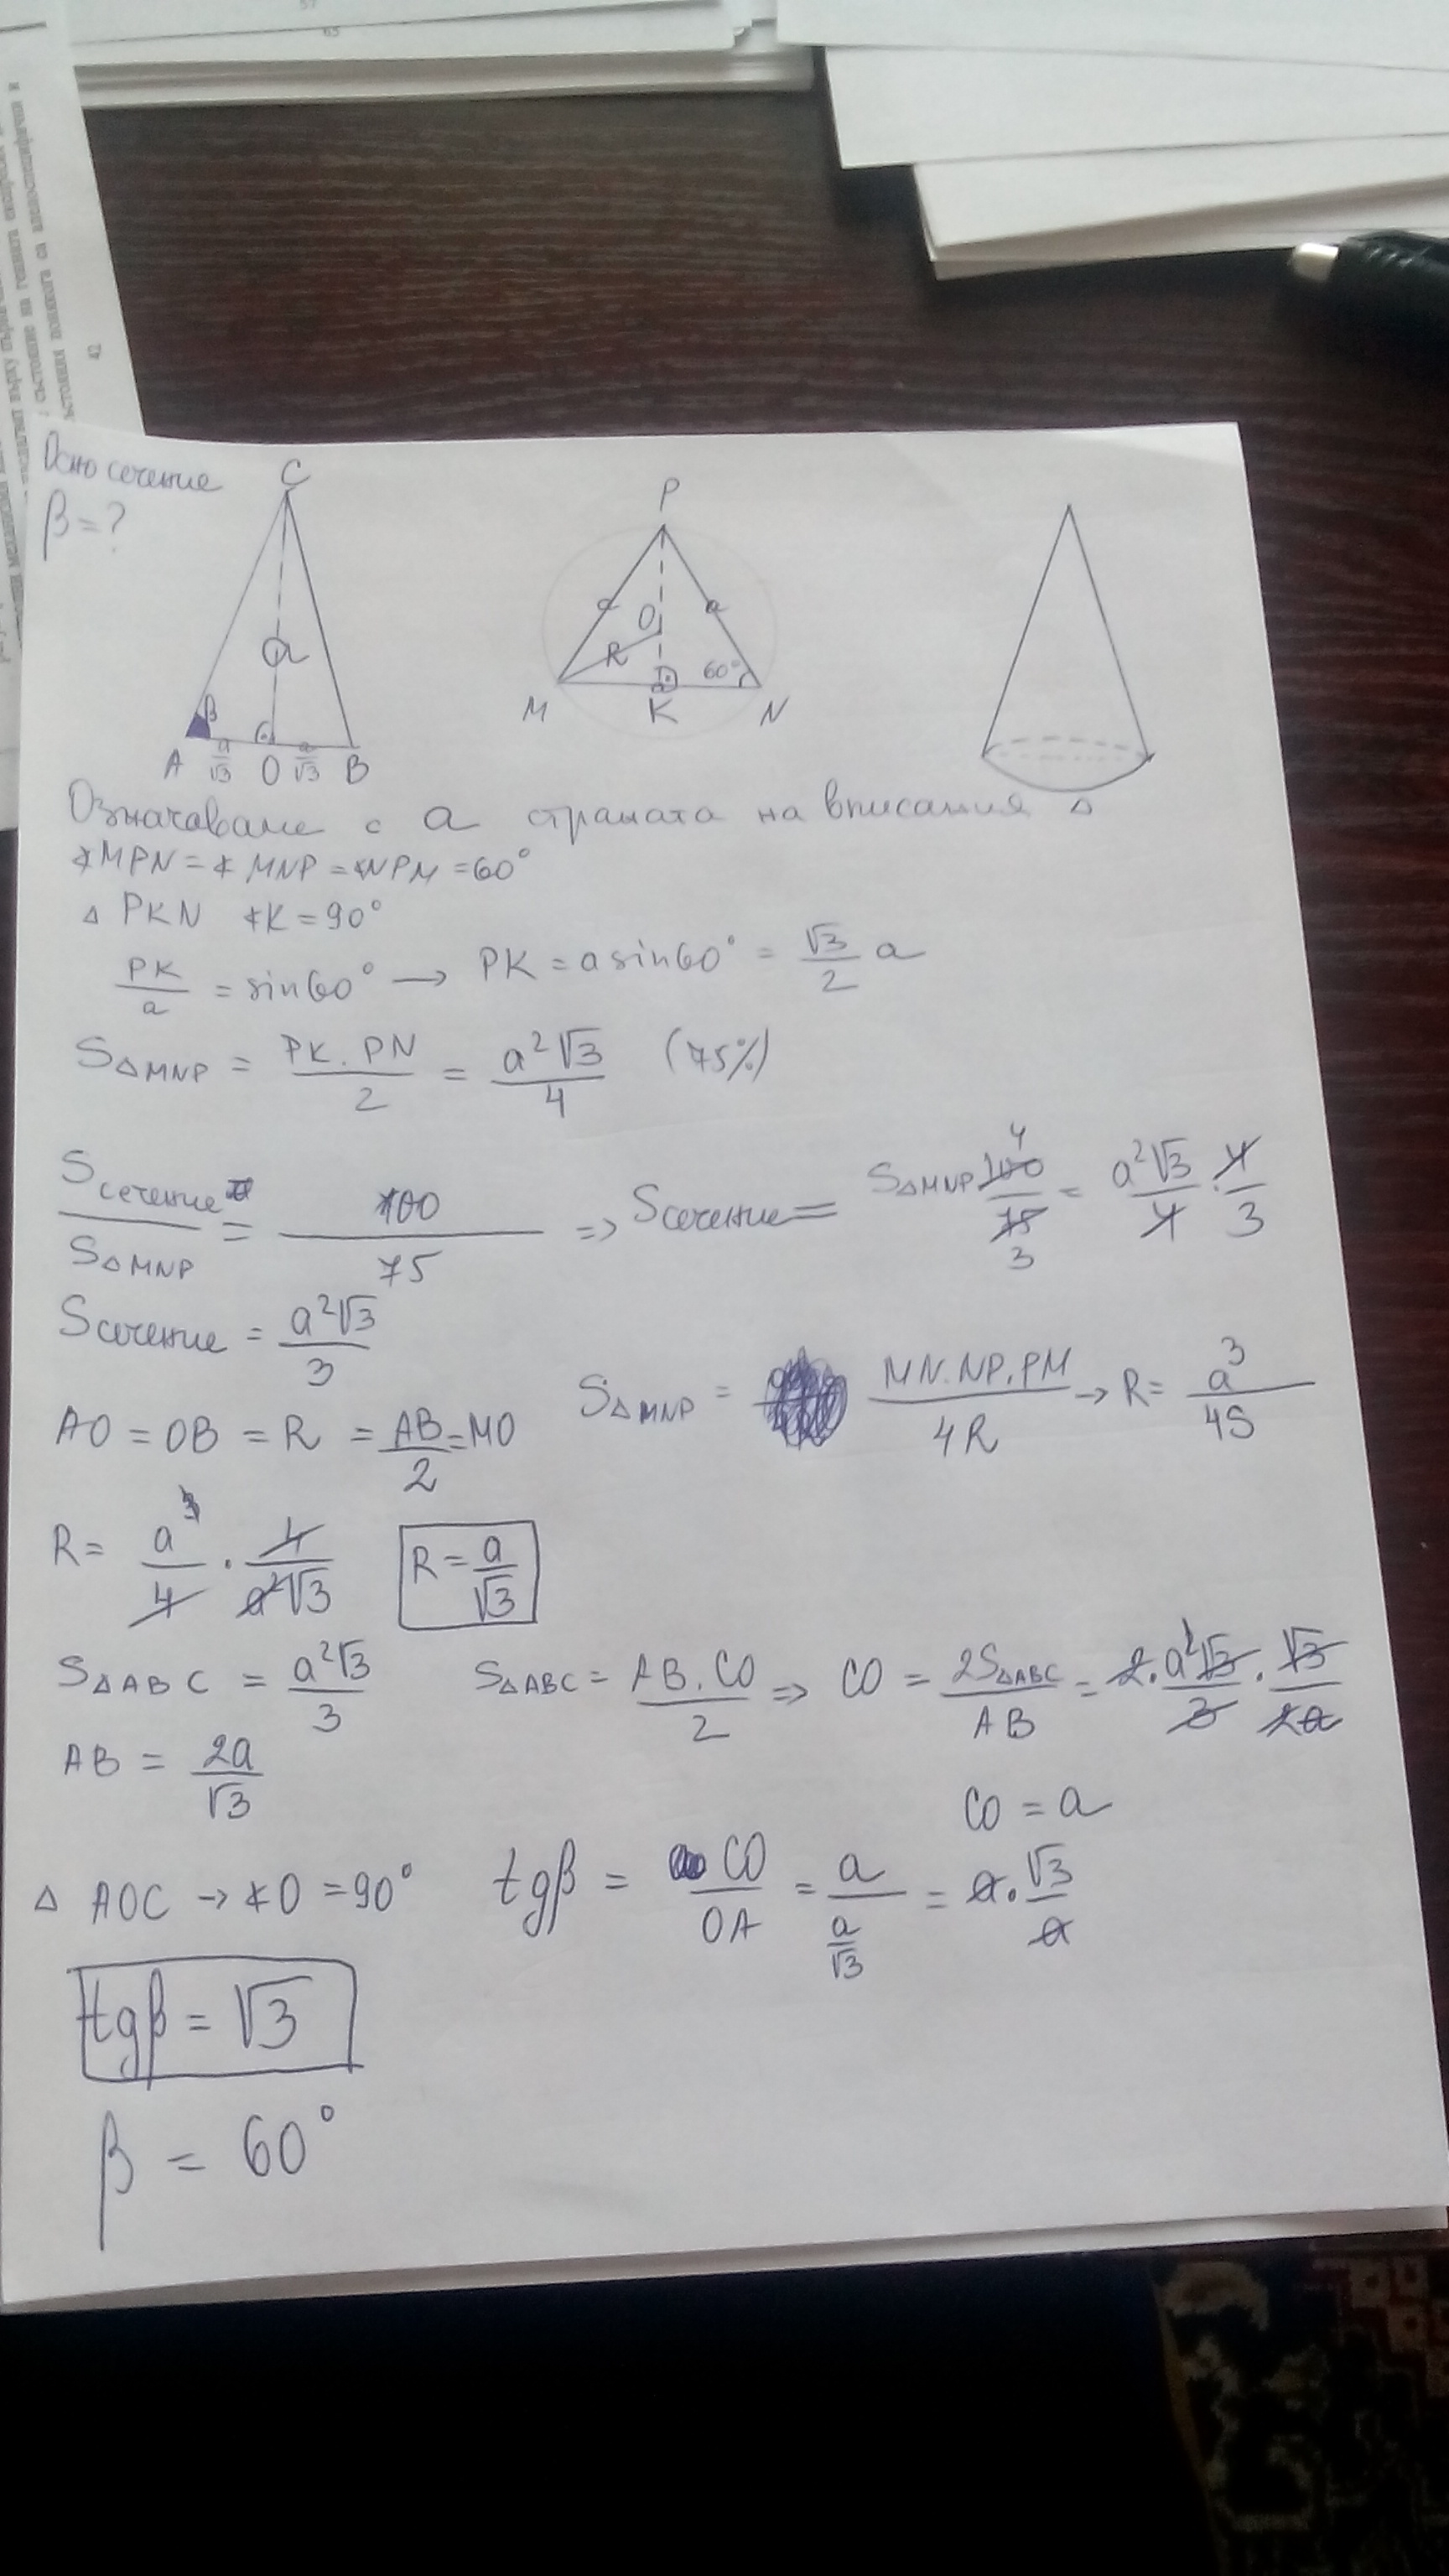 57
65
42
Осно сечение
β = ?
C
a
β
A a/√3 O a/√3 B
P
a a
O
R
60°
M K N
Означаваме с a страната на вписания △
∢MPN = ∢MNP = ∢NPM = 60°
△ PKN ∢K = 90°
PK/a = sin60° → PK = a sin60° = √3/2 a
S△MNP = PK . PN/2 = a²√3/4 (75%)
Sсечение/S△MNP = 100/75 => Sсечение = S△MNP 100/75 4/3 = a²√3/4 . 4/3
Sсечение = a²√3/3
S△MNP = MN.NP.PM/4R → R = a³/4S
AO = OB = R = AB/2 = MO
R = a³/4 . 4/a²√3 R = a/√3
S△ABC = a²√3/3 S△ABC = AB.CO/2 => CO = 2S△ABC/AB = 2.a²√3/3 . √3/2a
AB = 2a/√3
CO = a
△ AOC → ∢O = 90° tgβ = CO/OA = a/(a/√3) = a.√3/a
tgβ = √3
β = 60°